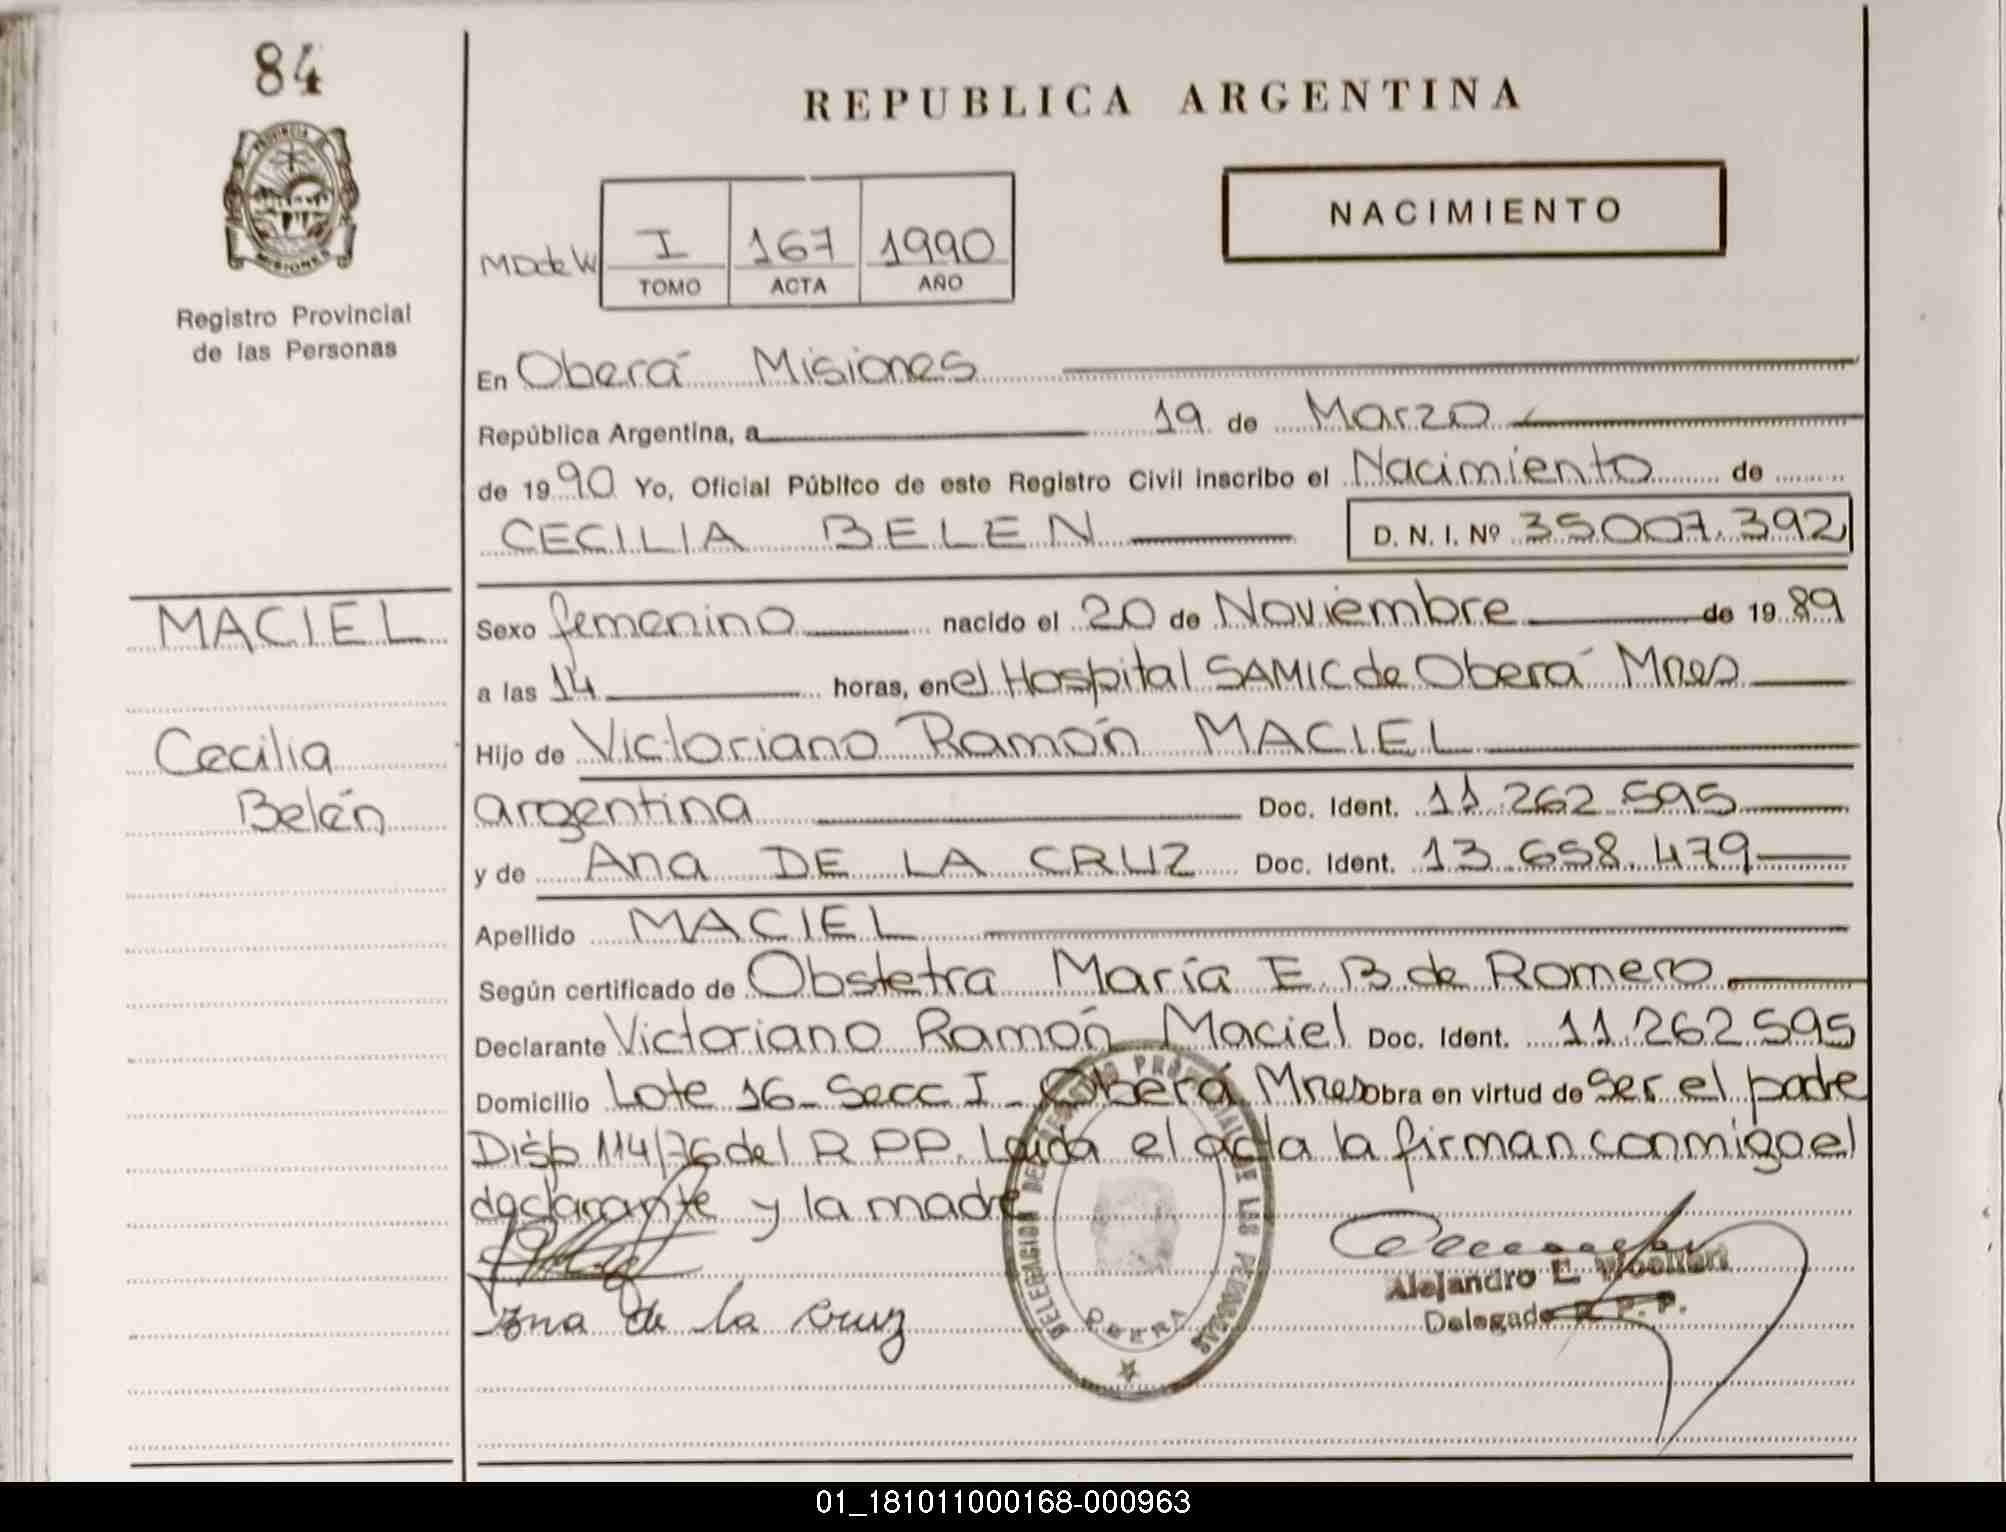 84
PROVINCIA DE
MISIONES
Registro Provincial
de las Personas
MACIEL
Cecilia
Belén
REPUBLICA ARGENTINA
NACIMIENTO
I 167 1990
TOMO ACTA AÑO
En Oberá Misiones
República Argentina, a 19 de Marzo
de 1990 Yo, Oficial Público de este Registro Civil inscribo el Nacimiento de
CECILIA BELEN D. N. I. Nº 35007.392
Sexo femenino nacido el 20 de Noviembre de 1989
a las 14 horas, en el Hospital SAMIC de Oberá Mnes
Hijo de Victoriano Ramón MACIEL
argentina Doc. Ident. 11.262.595
y de Ana DE LA CRUZ Doc. Ident. 13.658.479
Apellido MACIEL
Según certificado de Obstetra María E. B de Romero
Declarante Victoriano Ramón Maciel Doc. Ident. 11.262.595
Domicilio Lote 16- Secc I - Oberá Mnes obra en virtud de ser el padre
Disp 114/76 del R PP. Leida el acta la firman conmigo el
declarante y la madre
Ana de la cruz
DELEGACION DEL REGISTRO PROVINCIAL DE LAS PERSONAS
OBERA
Alejandro E.
Delegado R. P. P.
01_181011000168-000963